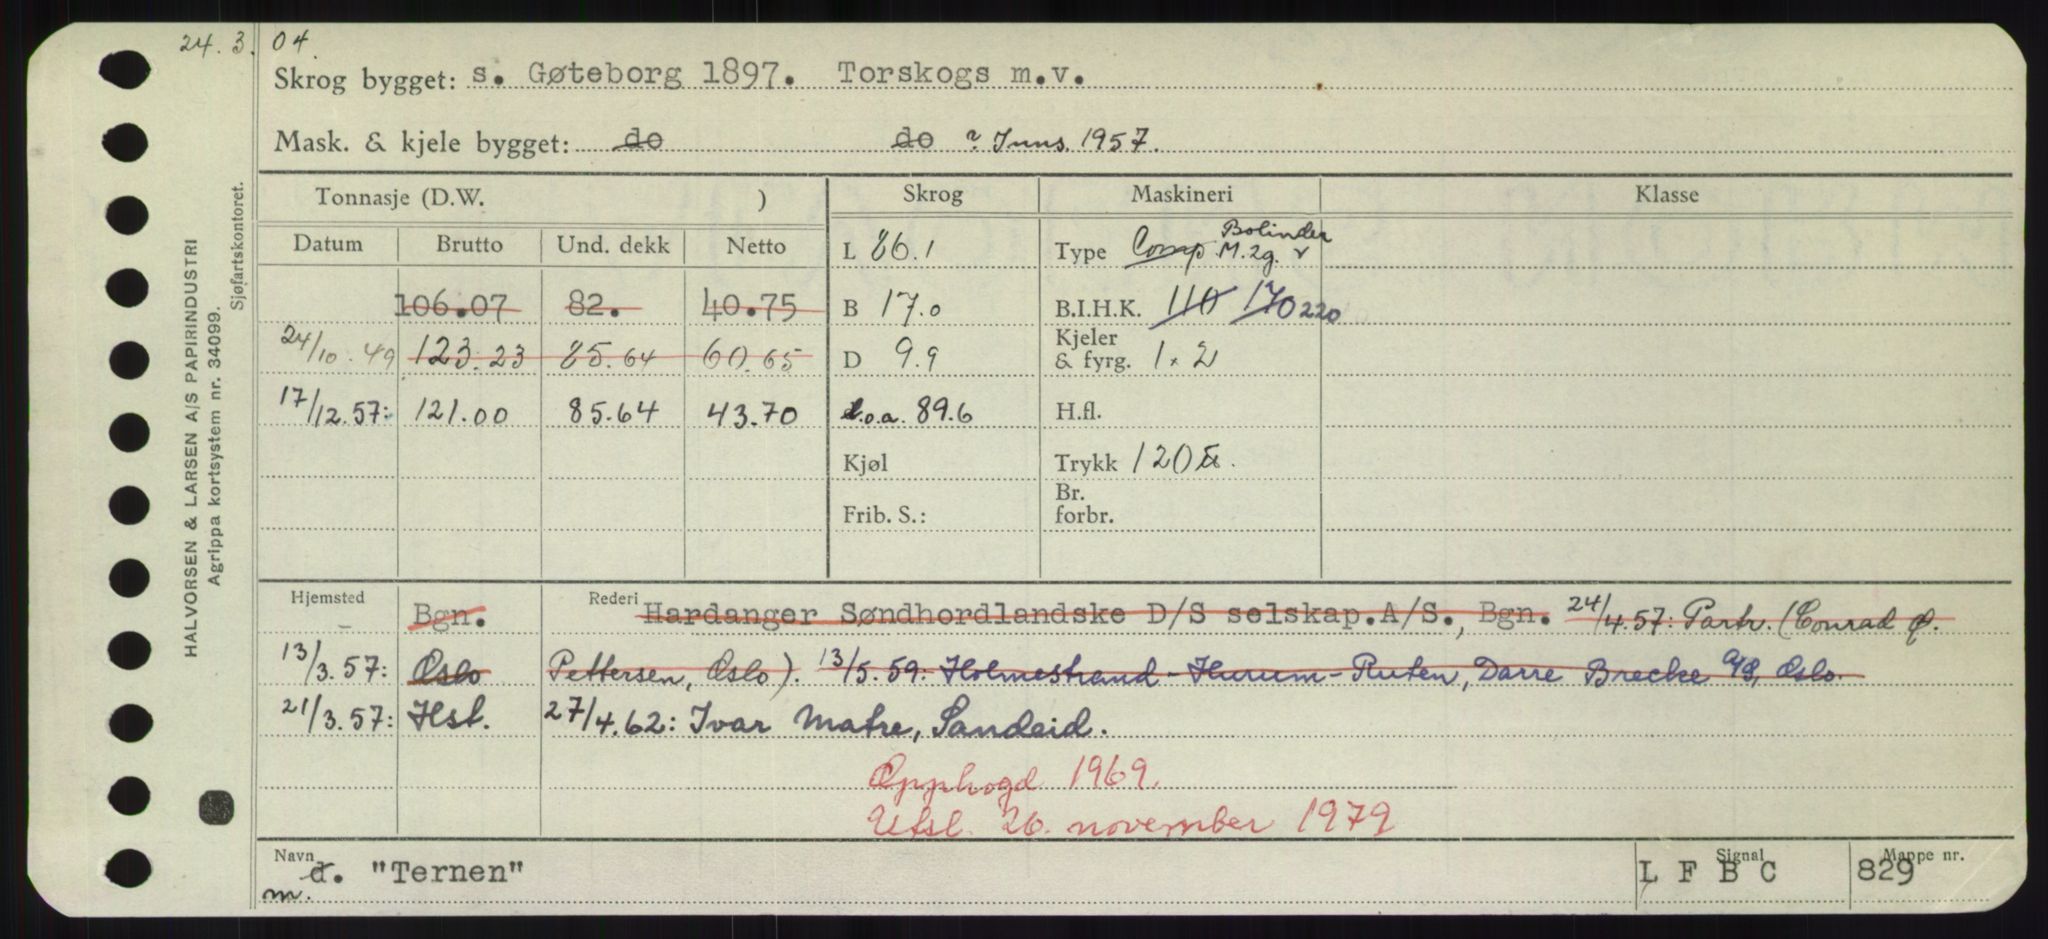 24.3.04.
Skrog bygget: s. Gøteborg 1897. Torskogs m.v.
Mask. & kjele bygget: do do ? Inns. 1957.
HALVORSEN & LARSEN A/S PAPIRINDUSTRI
Agrippa kortsystem nr. 34099.
Sjøfartskontoret.
Tonnasje (D.W. ) Skrog Maskineri Klasse
Datum Brutto Und. dekk Netto L 86.1 Type Comp Bolinder M. 2g. v
106.07 82. 40.75 B 17.0 B.I.H.K. 110 170 220
24/10.49 123.23 85.64 60.65 D 9.9 Kjeler & fyrg. 1 x 2
17/12.57: 121.00 85.64 43.70 L.o.a. 89.6 H.fl.
Kjøl Trykk 120 lb.
Frib. S.: Br. forbr.
Hjemsted Bgn. Rederi Hardanger Søndhordlandske D/S selskap.A/S., Bgn. 24/4.57: Partr. (Conrad Ø.
13/3.57: Oslo Pettersen, Oslo). 13/5.59: Holmestrand-Hurum-Ruten, Darre Brecke A/S, Oslo.
21/3.57: Hst. 27/4.62: Ivar Matre, Sandeid.
Opphogd 1969.
Utsl. 26. november 1979
Navn d. "Ternen" Signal L F B C Mappe nr. 829
m.